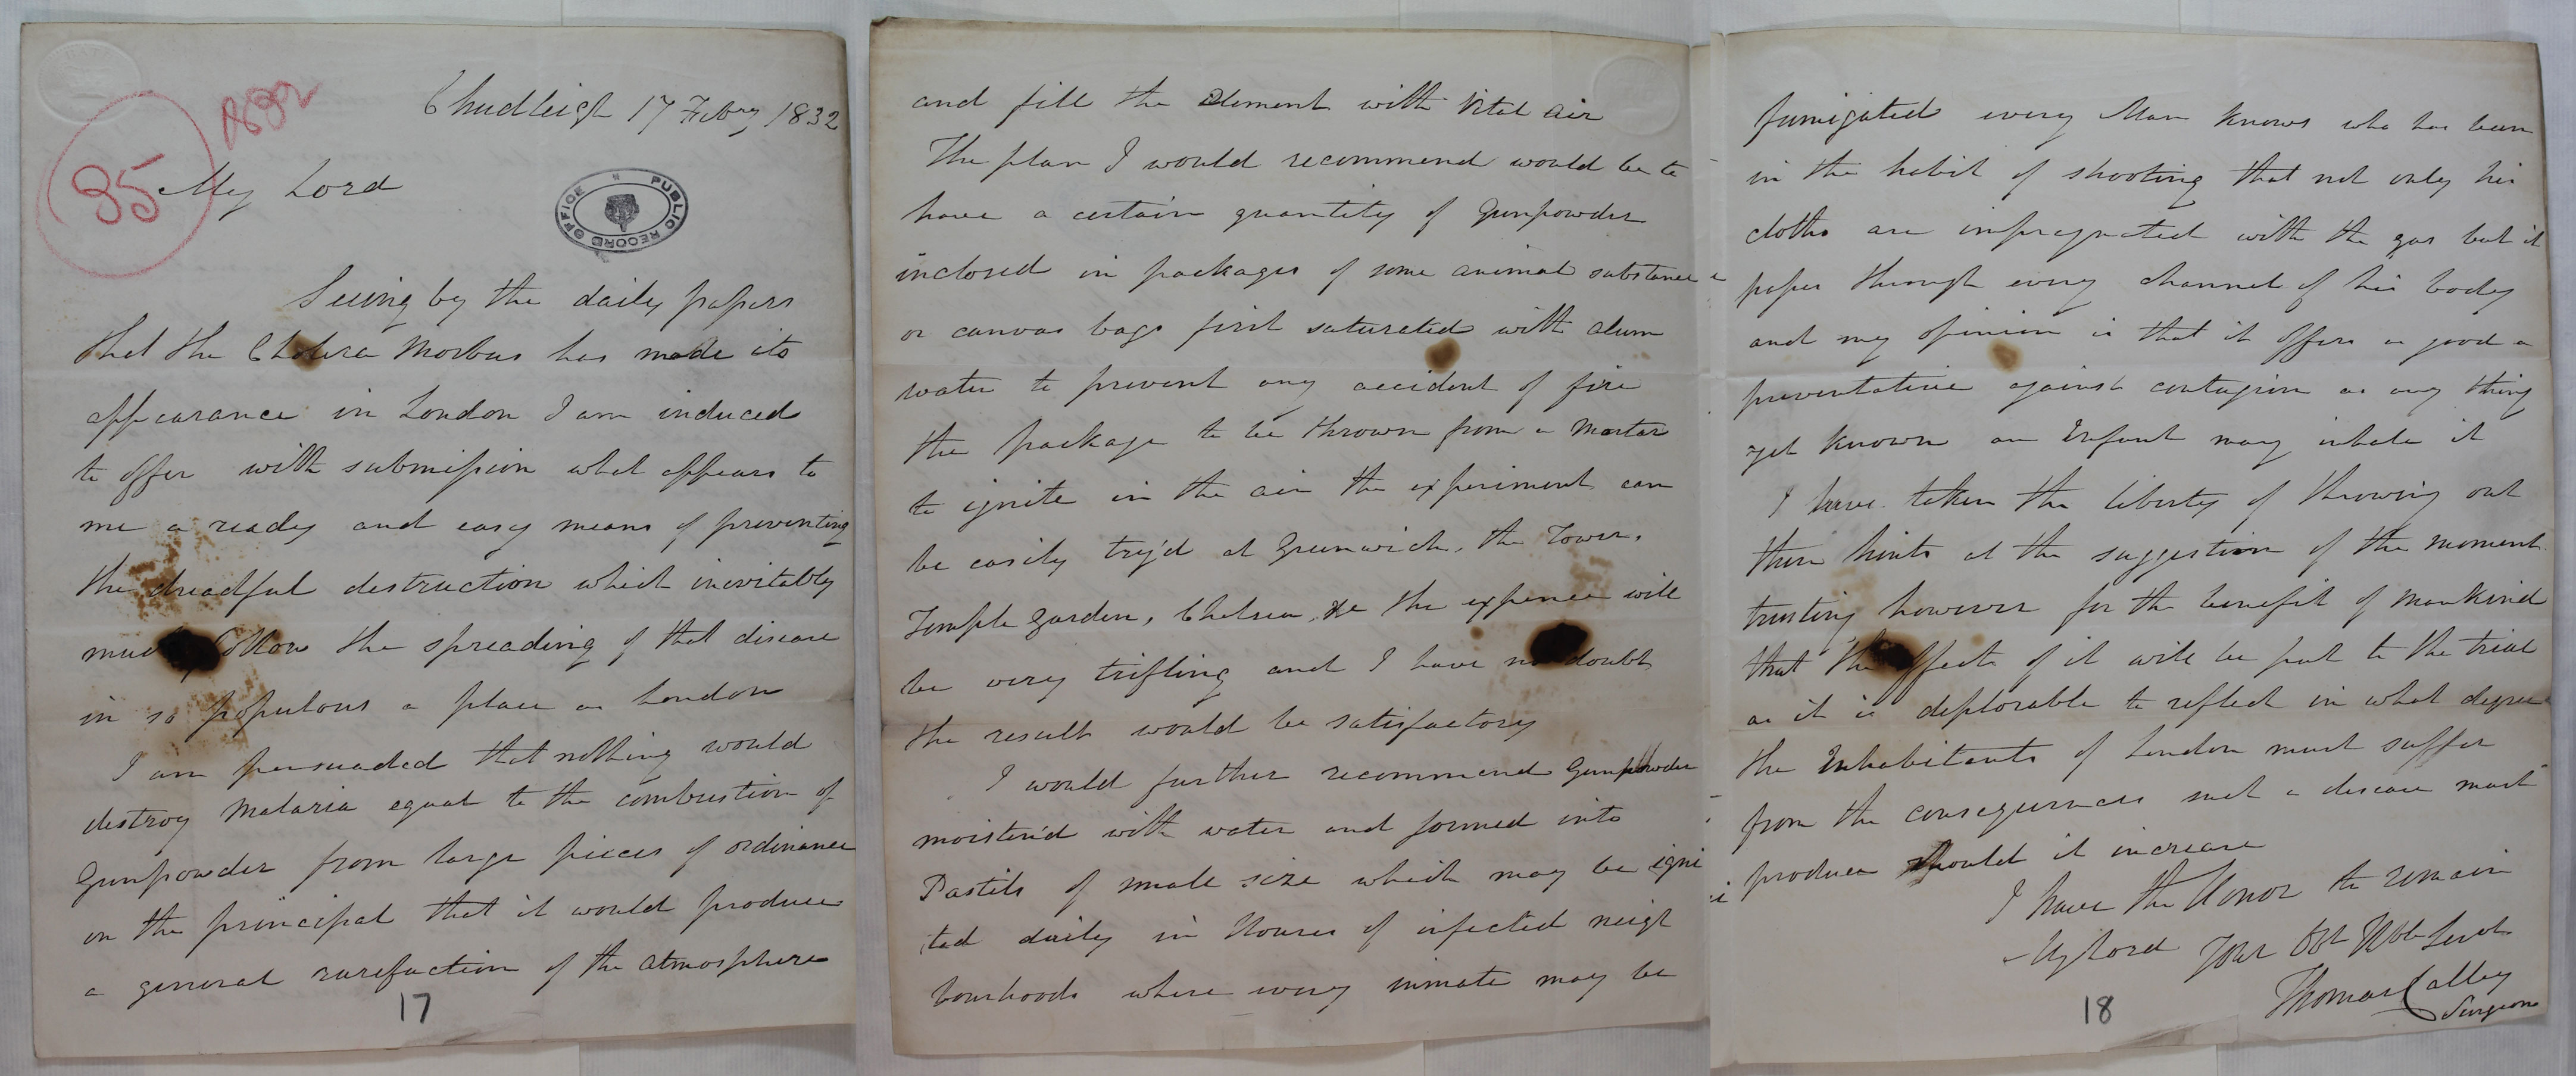 Chudleigh 17 Febry 1832
1832
35
My Lord
PUBLIC RECORD OFFICE
Seeing by the daily papers
that the Cholera Morbus has made its
appearance in London I am induced
to offer with submission what appears to
me a ready and easy means of preventing
the dreadful destruction which inevitably
must follow the spreading of that disease
in so populous a place as London
I am persuaded that nothing would
destroy Malaria equal to the combustion of
Gunpowder from large pieces of ordinance
on the principal that it would produce
a general rarefaction of the atmosphere
17
and fill the Element with Vital air
The plan I would recommend would be to
have a certain quantity of Gunpowder
inclosed in packages of some animal substance
or canvas bags first saturated with alum
water to prevent any accident of fire
the package to be thrown from a Mortar
to ignite in the air the experiment can
be easily try'd at Greenwich, the Tower,
Temple Garden, Chelsea, &c the expence will
be very trifling and I have no doubt
the result would be satisfactory
I would further recommend Gunpowder
moisten'd with water and formed into
Pastils of small size which may be igni
ted daily in Houses of infected neigh
bourhoods where every inmate may be
fumigated every Man knows who has been
in the habit of shooting that not only his
cloths are impregnated with the gas but it
passes through every channel of his body
and my opinion is that it offers as good a
preventative against contagion as any thing
yet known an Infant may inhale it
I have taken the liberty of throwing out
these hints at the suggestion of the moment
trusting however for the benefit of Mankind
that the effects of it will be put to the trial
as it is deplorable to reflect in what degree
the Inhabitants of London must suffer
from the consequences such a disease must
produce should it increase
I have the Honor to remain
My Lord Your Obt Hble Servt
Thomas Calley
Surgeon
18